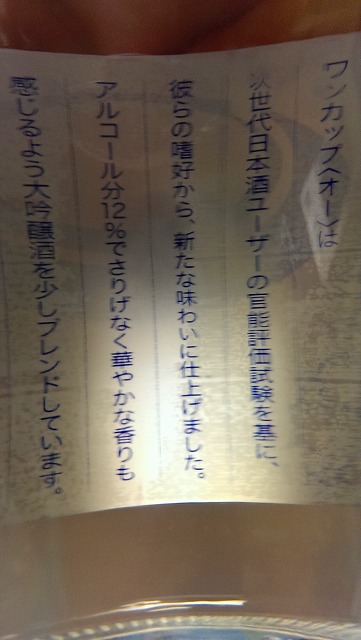 ワンカップ〈オー〉は
次世代日本酒ユーザーの官能評価試験を基に、
彼らの嗜好から、新たな味わいに仕上げました。
アルコール分12%でさりげなく華やかな香りも
感じるよう大吟醸酒を少しブレンドしています。